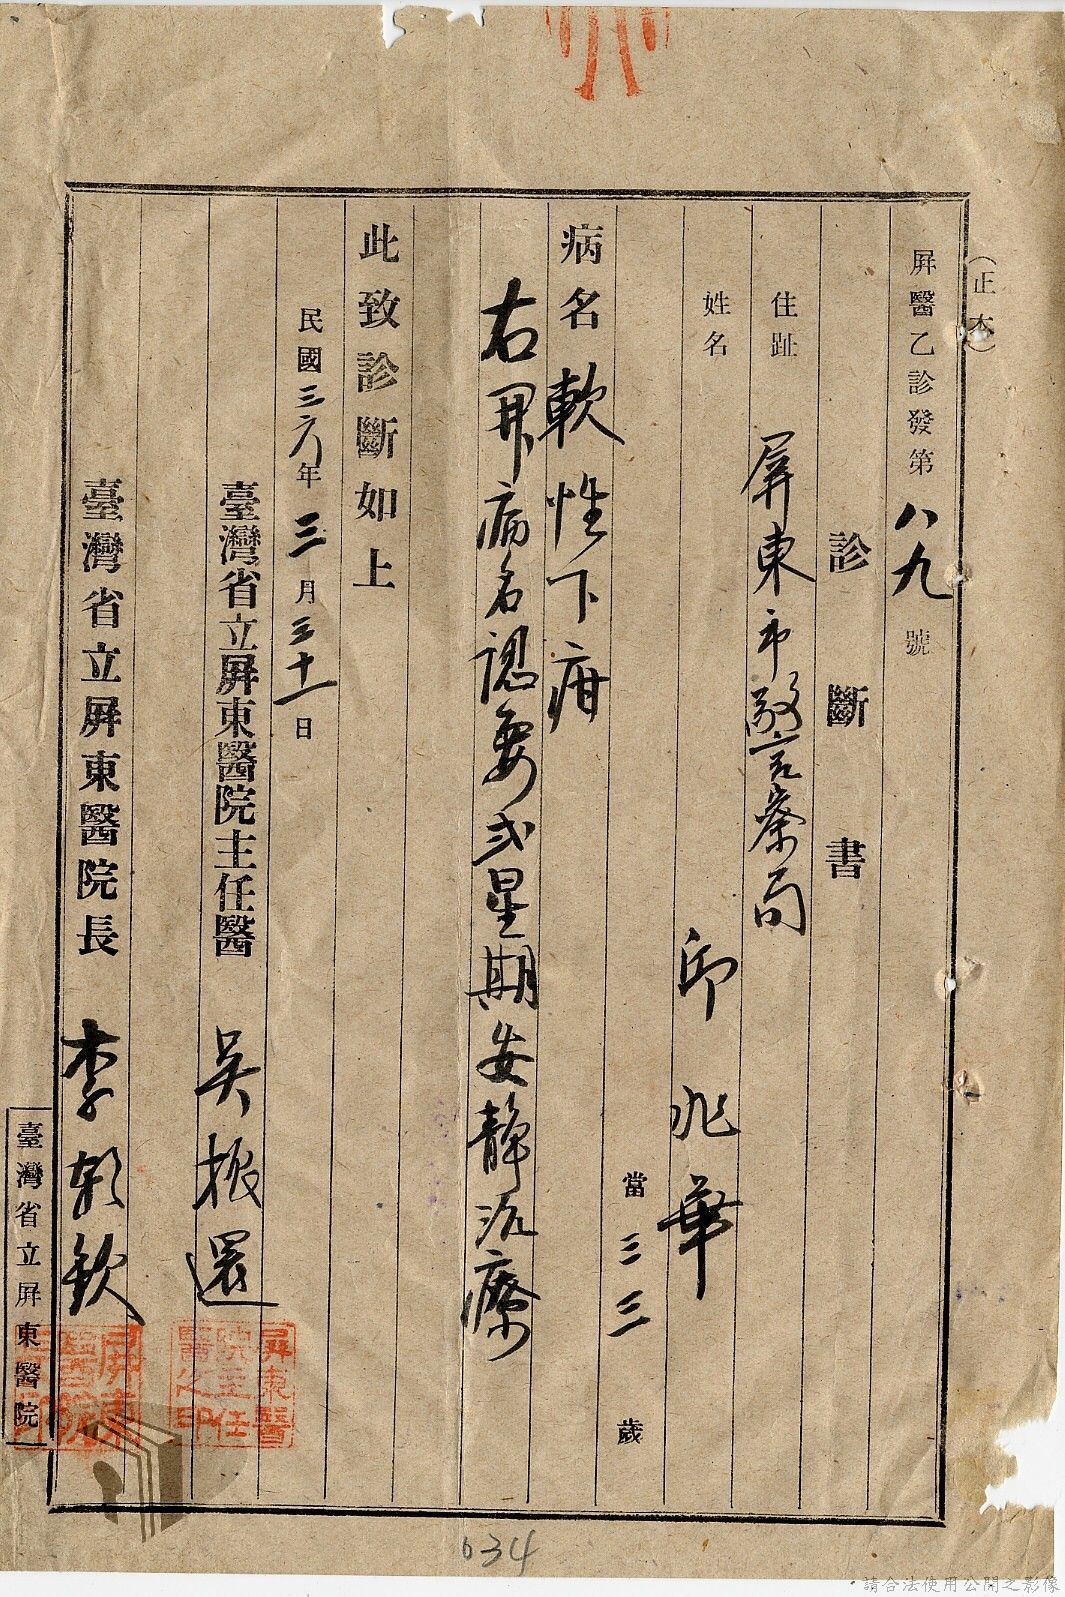 (正本)
屛醫乙診發第八九號
診斷書
住趾 屏東市警察局
姓名 邱兆華
當三三歲
病名 軟性下疳
右開病名認要弍星期安靜治療
此致診斷如上
民國三六年三月三十一日
臺灣省立屛東醫院主任醫 吳振還
臺灣省立屛東醫院長 李 欽
屏東醫院主任醫之印
屏東醫院
臺灣省立屛東醫院
634
請合法使用公開之影像